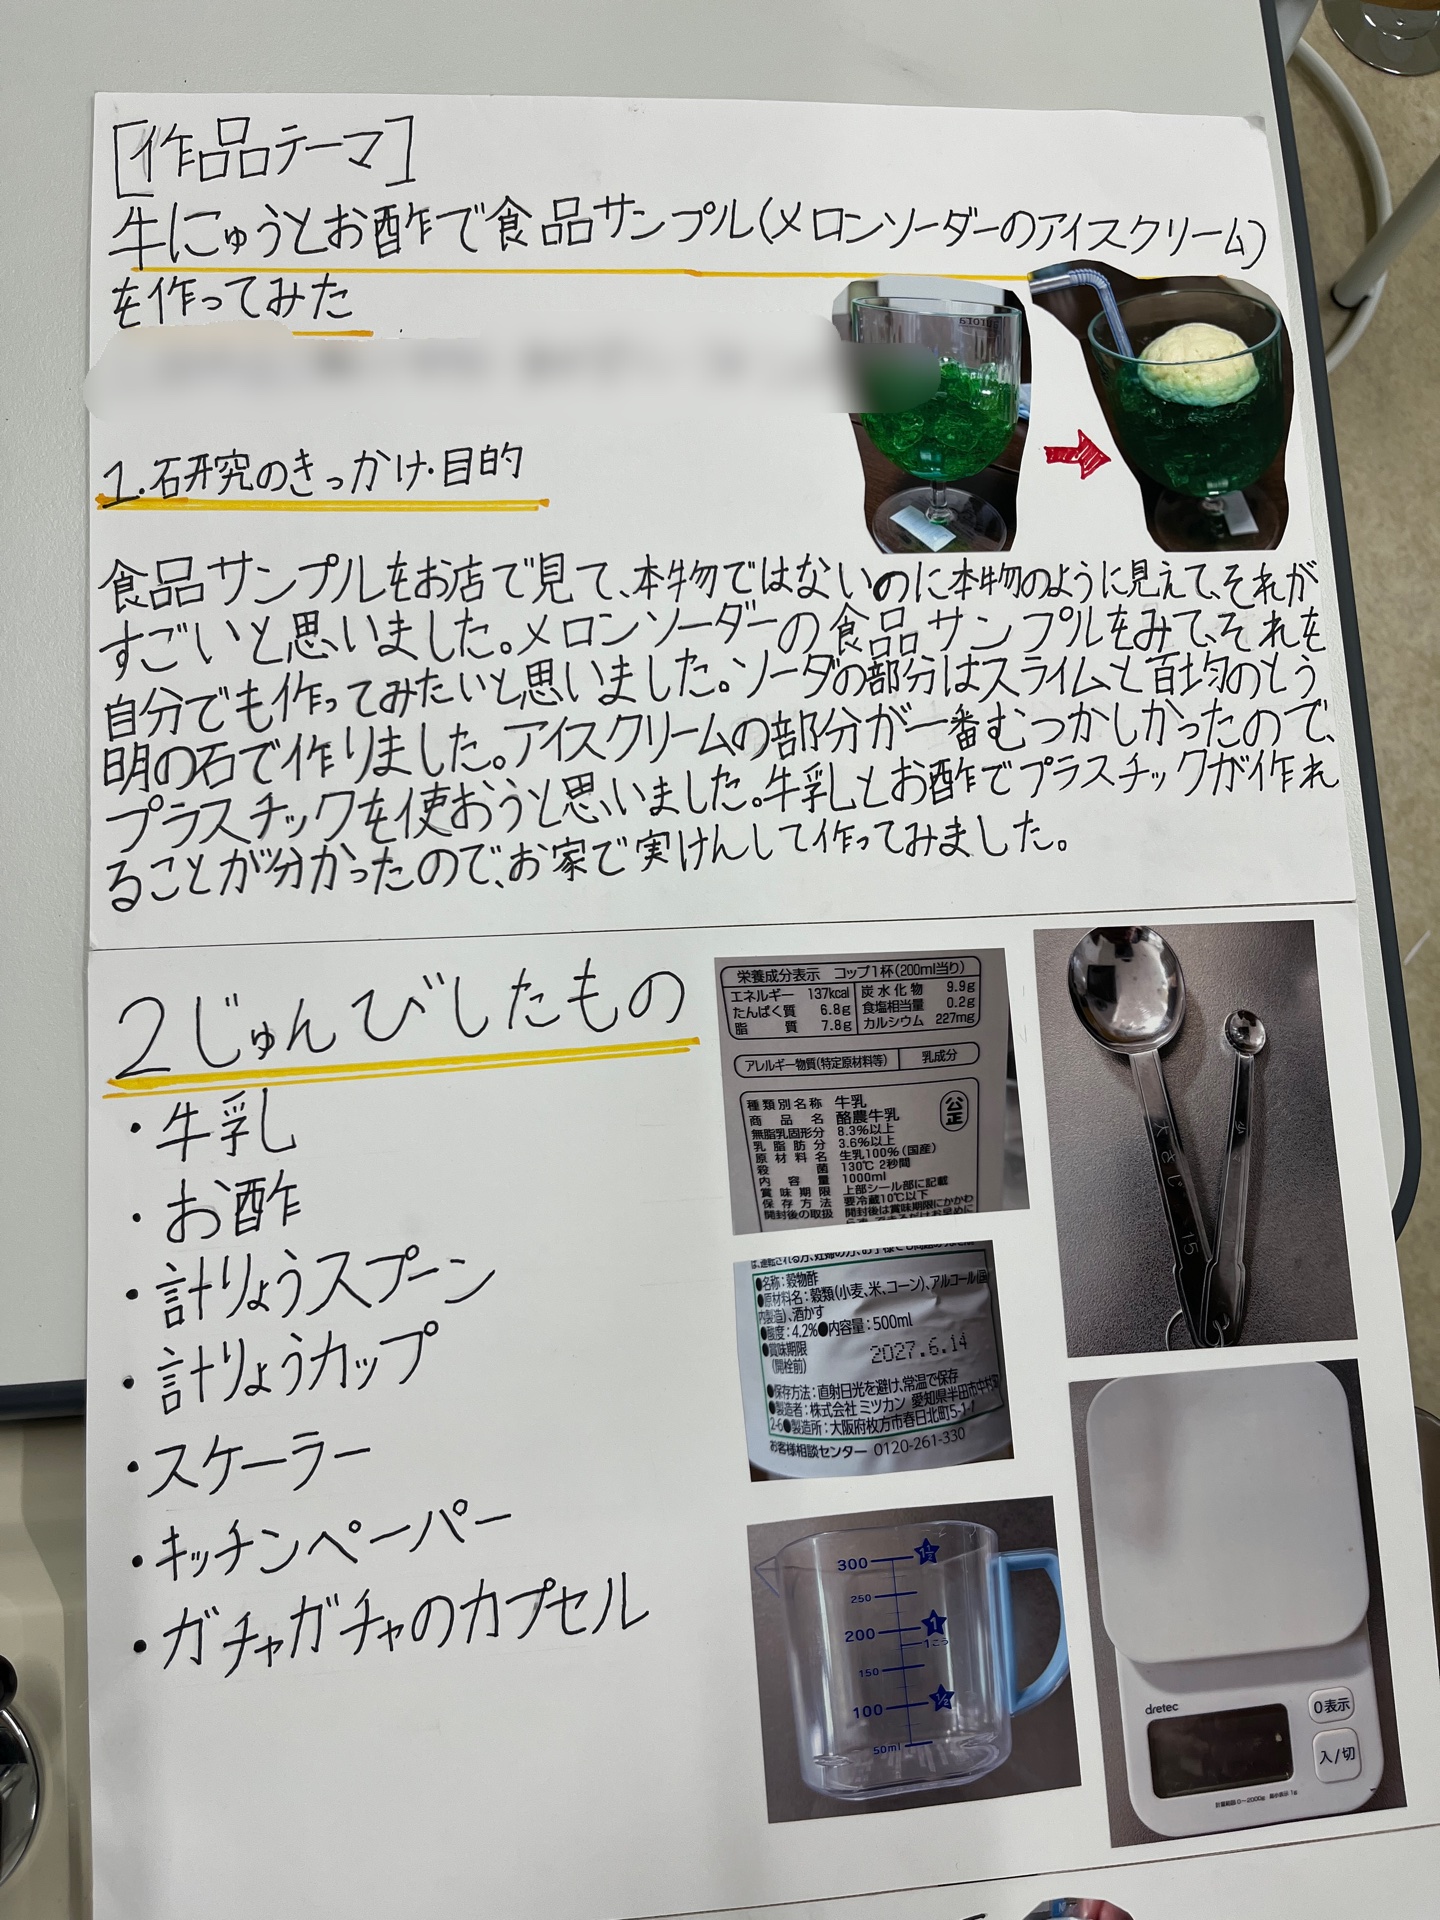 [作品テーマ]
牛にゅうとお酢で食品サンプル(メロンソーダーのアイスクリーム)
を作ってみた
1.研究のきっかけ・目的
食品サンプルをお店で見て、本物ではないのに本物のように見えて、それが
すごいと思いました。メロンソーダーの食品サンプルをみて、それを
自分でも作ってみたいと思いました。ソーダの部分はスライムと百均のとう
明の石で作りました。アイスクリームの部分が一番むつかしかったので、
プラスチックを使おうと思いました。牛乳とお酢でプラスチックが作れ
ることが分かったので、お家で実けんして作ってみました。
2じゅんびしたもの
・牛乳
・お酢
・計りょうスプーン
・計りょうカップ
・スケーラー
・キッチンペーパー
・ガチャガチャのカプセル
栄養成分表示 コップ1杯(200ml当り)
エネルギー 137kcal 炭水化物 9.9g
たんぱく質 6.8g 食塩相当量 0.2g
脂質 7.8g カルシウム 227mg
アレルギー物質(特定原材料等) 乳成分
種類別名称 牛乳
公正
商品名 酪農牛乳
無脂乳固形分 8.3%以上
乳脂肪分 3.6%以上
原材料名 生乳100%(国産)
殺菌 130℃ 2秒間
内容量 1000ml
賞味期限 上部シール部に記載
保存方法 要冷蔵10℃以下
開封後の取扱 開封後は賞味期限にかかわ
大さじ 15
●名称:穀物酢
●原材料名:穀類(小麦、米、コーン)、アルコール(国
内製造)、酒かす
●酸度:4.2%●内容量:500ml
●賞味期限
(開栓前)
2027.6.14
●保存方法:直射日光を避け、常温で保存
●製造者:株式会社 ミツカン 愛知県半田市中村町
2-6●製造所:大阪府枚方市春日北町5-1-
お客様相談センター 0120-261-330
300 1½
250
200 1
1こう
150
100 ½
50ml
dretec
0表示
入/切
計量範囲 0〜2000g 最小表示 1g